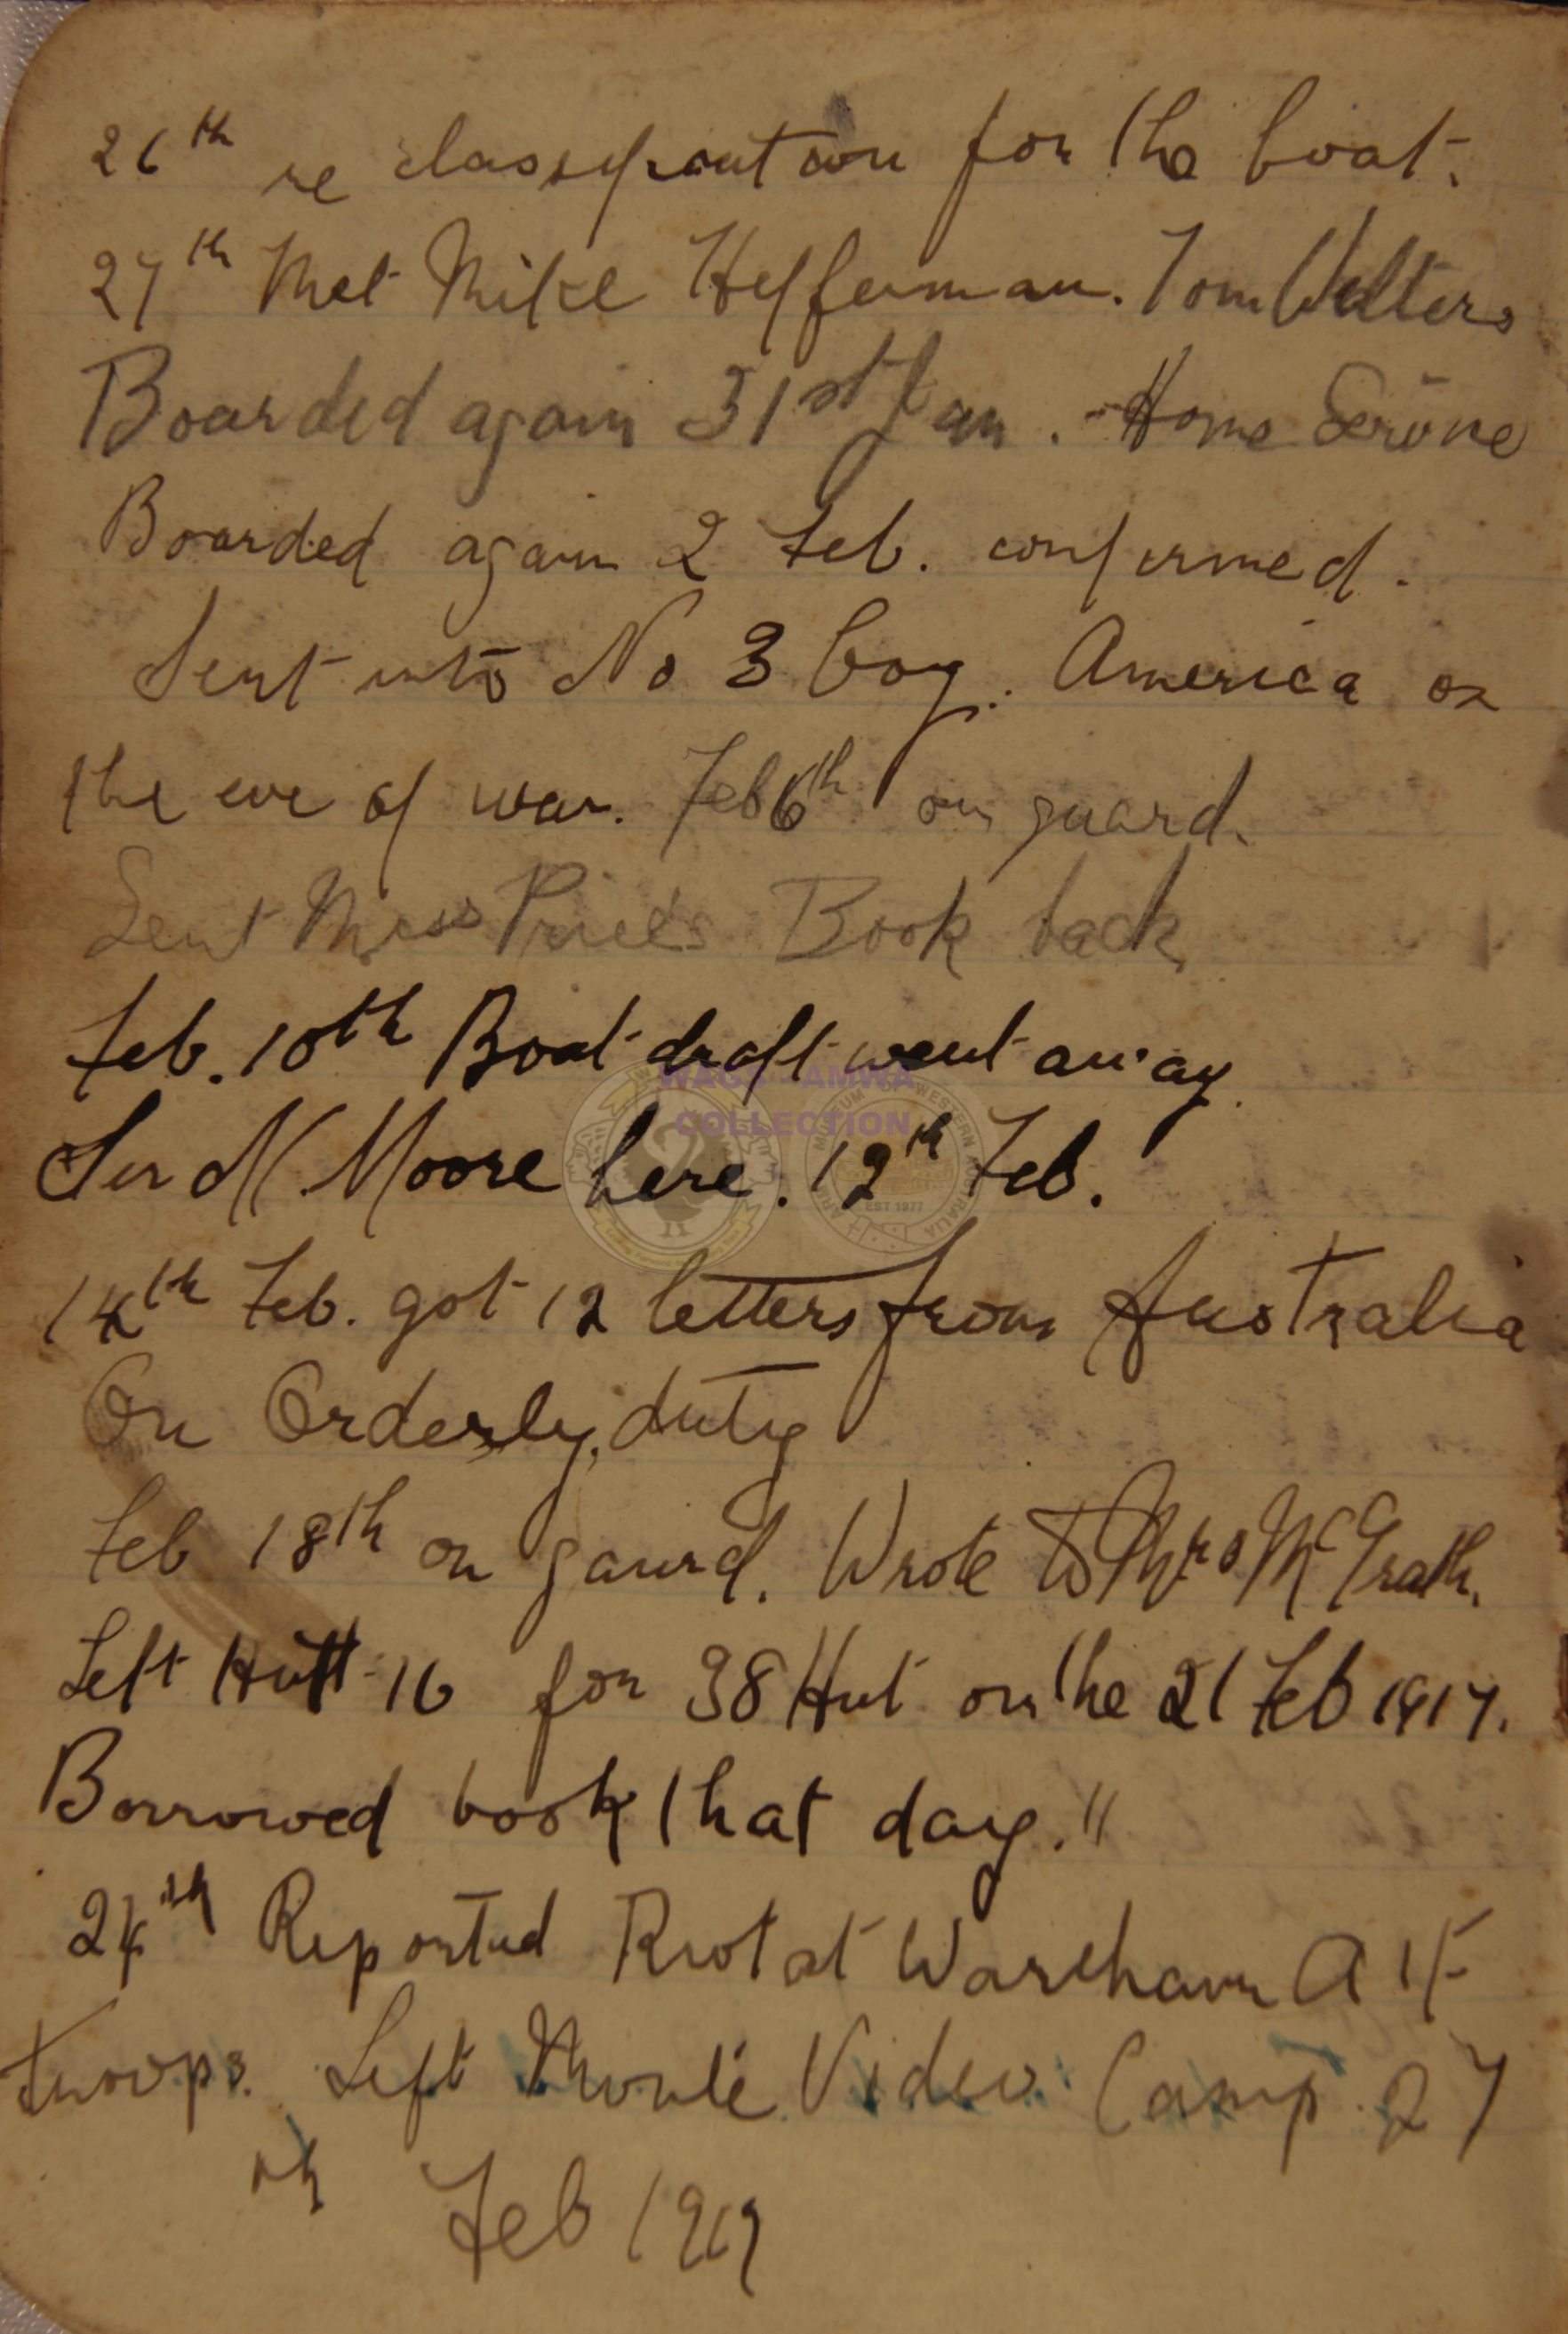 26th re classification for the boat.
27th Met Mike Heffernan. Tom Walters
Boarded again 31st Jan. - Home Service
Boarded again 2 Feb. confirmed.
Sent into No 3 Coy. America on
the eve of war. Feb 6th on guard.
Sent Miss Price's Book back
Feb. 10th Boat draft went away.
WAGS - AMWA
COLLECTION
Sir N. Moore here. 12th Feb.
EST 1977
14th Feb. got 12 letters from Australia
On Orderly duty
Feb 18th on gaurd. Wrote to Mrs McGrath.
Left Hutt 16 for 38 Hut on the 21 Feb 1917.
Borrowed book that day. "
24th Reported Riot at Wareham A I F
troops. Left Monte Video Camp 27
th Feb 1917